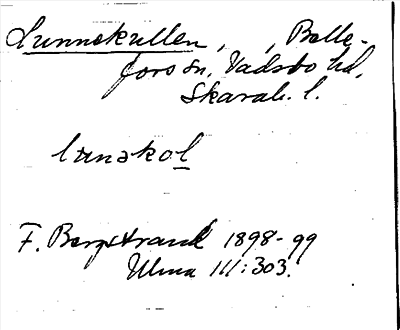 Lunnekullen, , Bälle-
fors sn, Vadsbo hd,
Skarab. l.
lunəkol
F. Bergstrand 1898-99
Ulma 111:303.